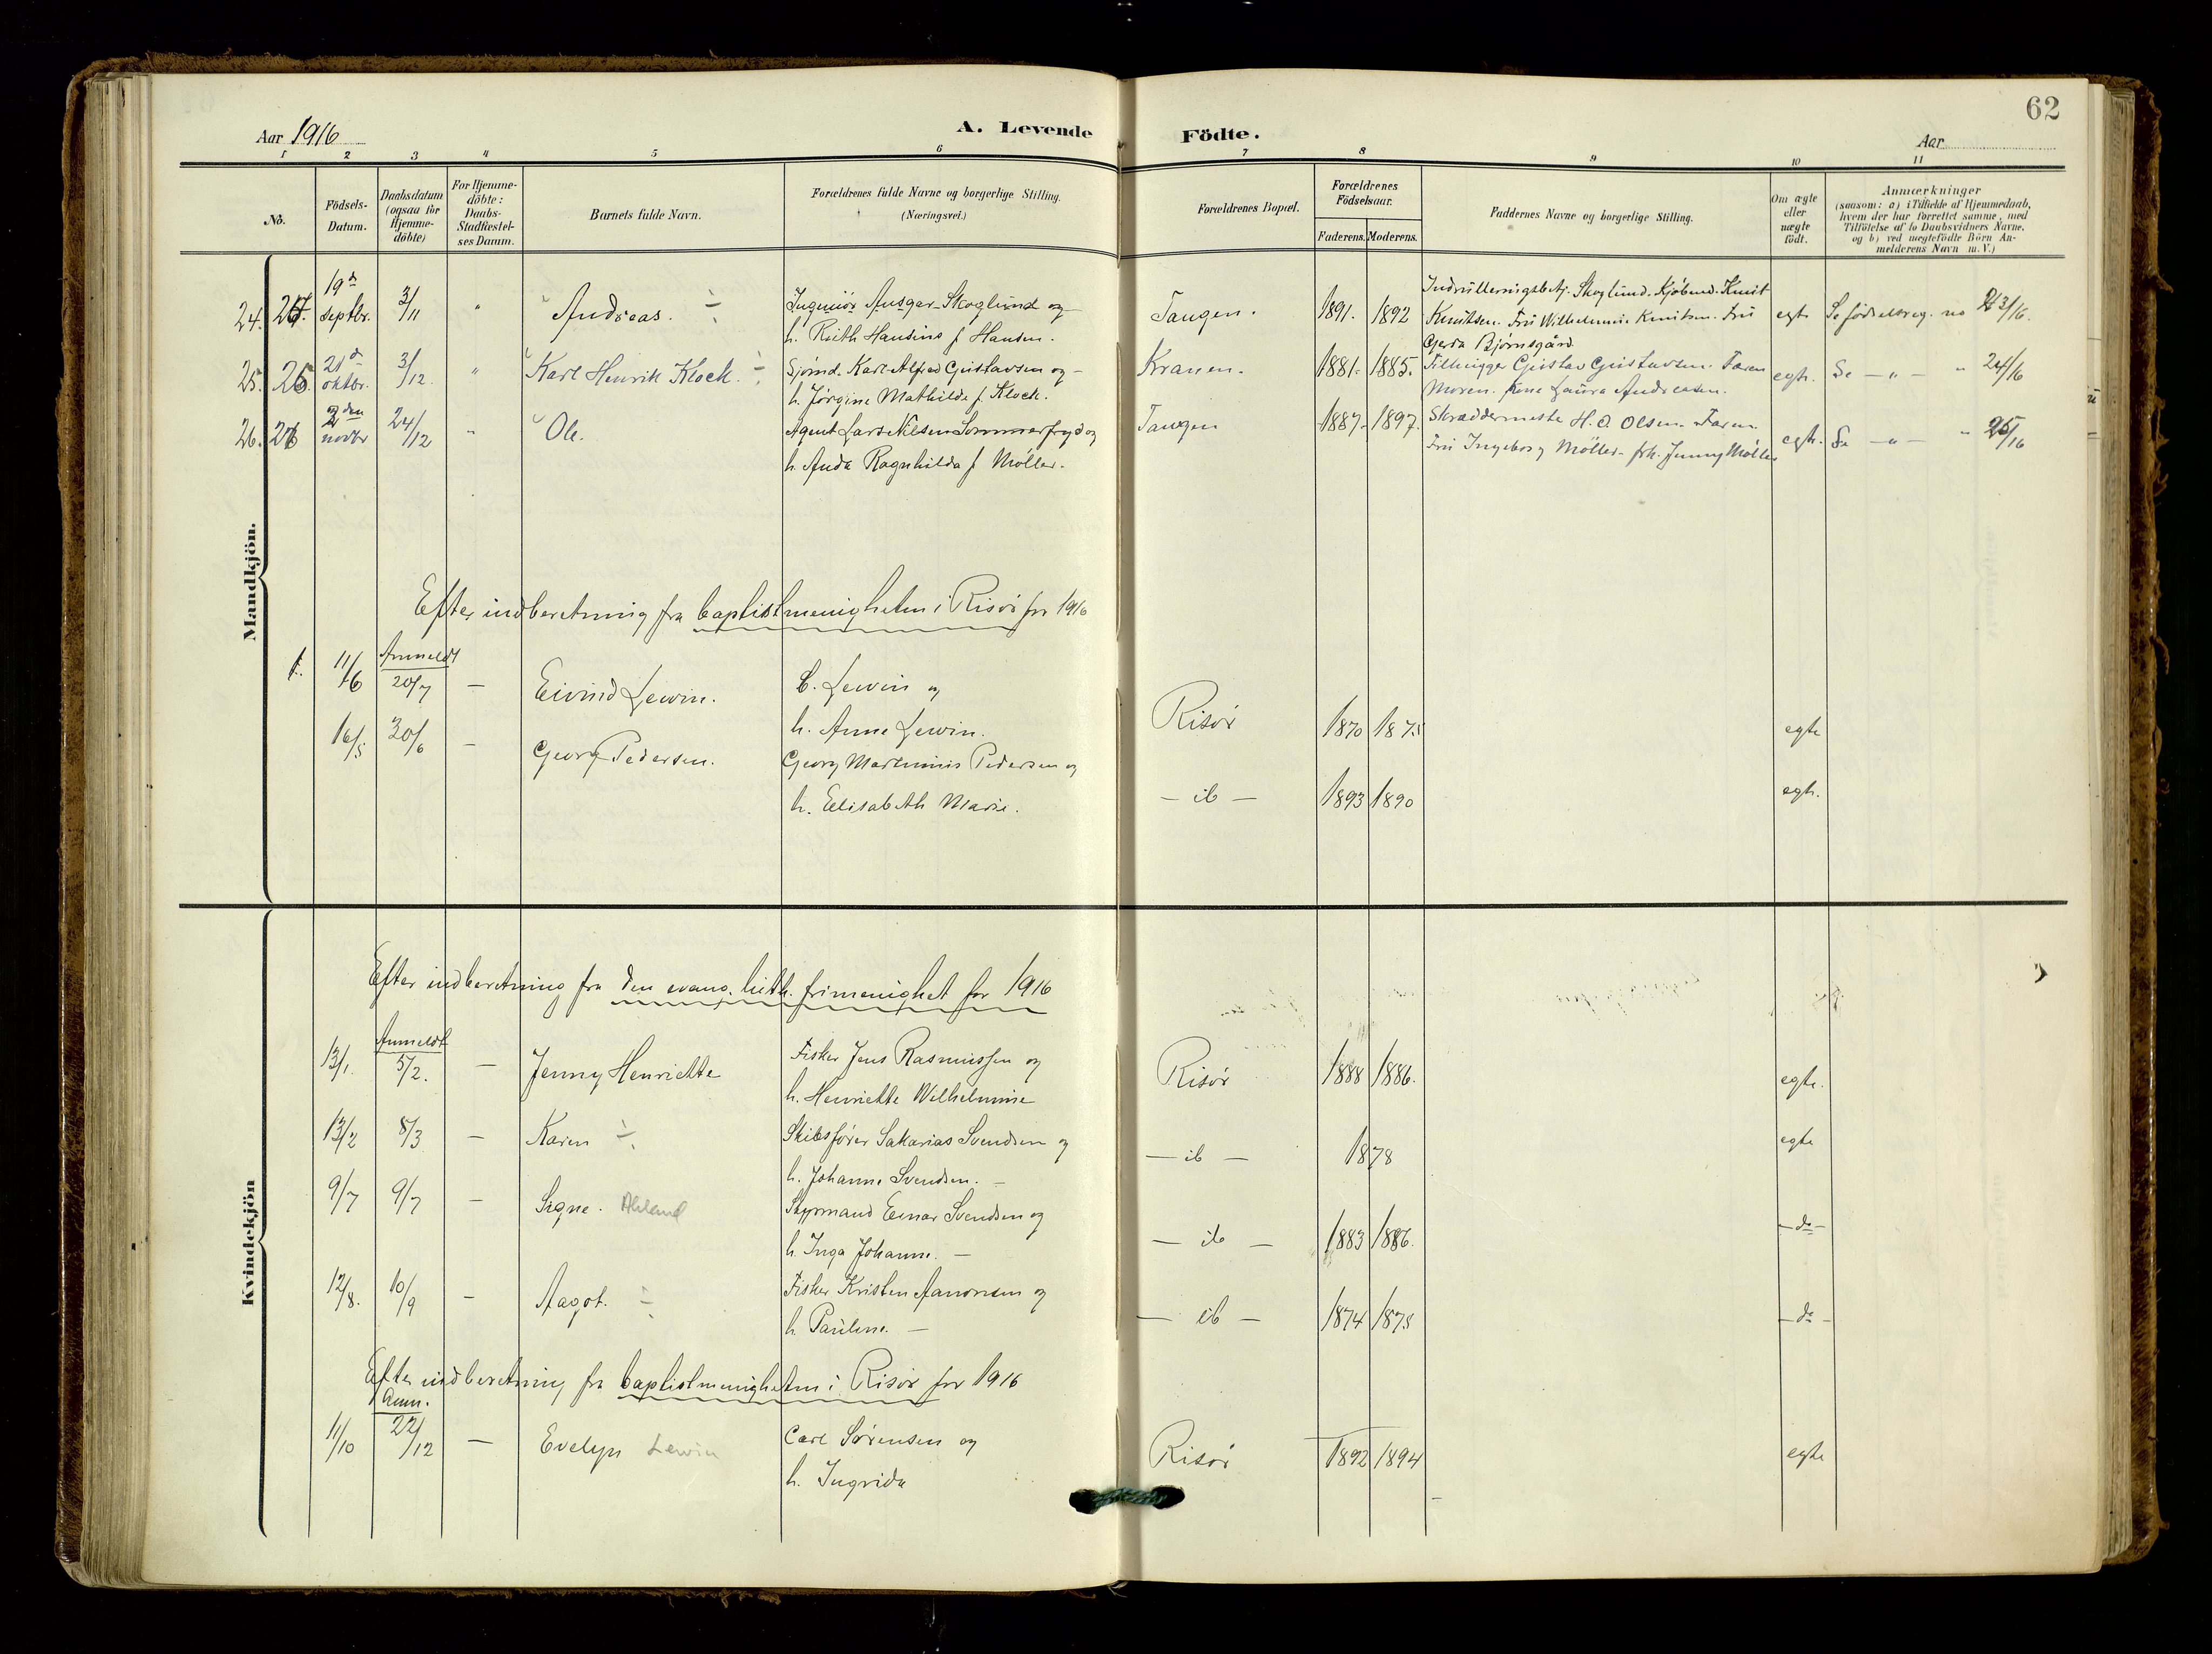 62
Aar 1916
A. Levende Födte.
Aar
1 2 3 4 5 6 7 8 9 10 11
No.
Födsels-Datum.
Daabsdatum (ogsaa for Hjemme-döbte)
For Hjemme-döbte: Daabs-Stadfæstel-ses Datum.
Barnets fulde Navn.
Forældrenes fulde Navne og borgerlige Stilling. (Næringsvei.)
Forældrenes Bopæl.
Forældrenes Födselsaar.
Faderens. Moderens.
Faddernes Navne og borgerlige Stilling.
Om ægte eller uægte födt.
Anmærkninger (saasom: a) i Tilfælde af Hjemmedaab, hvem der har forrettet samme, med Tilföielse af to Daabsvidners Navne, og b) ved uægtefödte Börn An-melderens Navn m. V.)
Mandkjön.
24. 19d septbr. 3/11 " Andreas. Ingeniör Ansgar Skoglund og Tangen. 1891. 1892 Indrulleringsbetj. Skoglund. Kjöbmd. Knut egte Se födselsreg. no 23/16.
h. Ruth Hansine f. Hansen. Knutsen. Fru Wilhelmine Knutsen. Fru
Gerda Björnsgård
25. 21d oktbr. 3/12. " Karl Henrik Klock. Sjömd. Karl Alfred Gustavsen og Kranen. 1881. 1885. Gustav Gustavsen. Faren egte. Se — " — " 24/16
h. Jörgine Mathilde f. Klock. Moren. Kone Laura Andreasen.
26. 2den novbr 24/12 " Ole. Agent Lars Nilsen Sommerfryd og Tangen 1887. 1897. Skræddermester H. O. Olsen. Faren. egte. Se — " — " 25/16
h. Anda Ragnhilda f. Möller. Fru Ingeborg Möller. frk. Jenny Möller
Efter indberetning fra baptistmenigheten i Risör for 1916
Anmeldt
1. 11/6 20/7 — Eivind Lewin. C. Lewin og
h. Anne Lewin. Risör 1870 1875 egte
16/5 20/6 — Georg Pedersen. Georg Martinius Pedersen og
h. Elisabeth Marie. — ib — 1893 1890 egte.
Kvindekjön
Efter indberetning fra den evang. luth. frimenighet for 1916
Anmeldt
13/1. 5/2. — Jenny Henriette Fisker Jens Rasmussen og Risör 1888 1886. egte.
h. Henriette Wilhelmine
13/2 8/3 — Karen Skibsförer Sakarias Svendsen og — ib — 1878 egte
h. Johanne Svendsen. —
9/7 9/7 — Signe. Styrmand Einar Svendsen og — ib — 1883 1886. — do —
h. Inga Johanne. —
12/8. 10/9 — Aagot. Fisker Kristen Aanonsen og — ib — 1874 1875 — do —
h. Pauline. —
Efter indberetning fra baptistmenigheten i Risör for 1916
Anm.
11/10 22/12 — Evelyn Lewin Carl Sörensen og Risör 1892 1894 egte
h. Ingrida